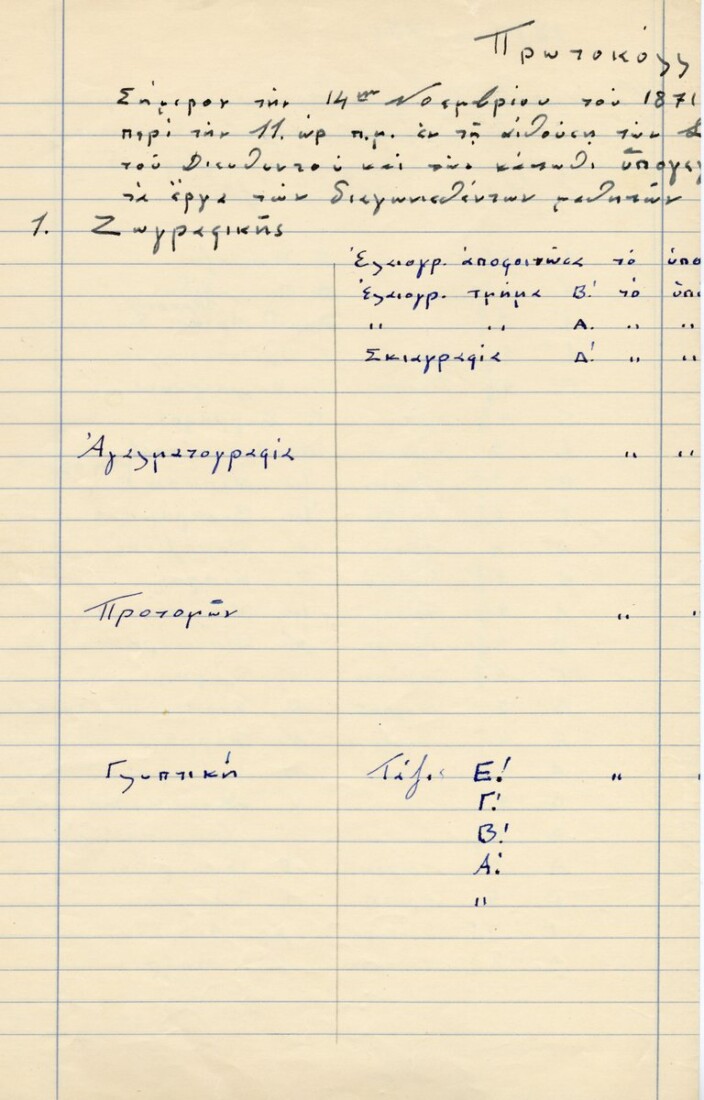 Πρωτοκόλλ
Σήμερον την 14ην Νοεμβρίου του 1871
περί την 11. ώρ π.μ. εν τη αιθούση των
του Διευθυντού και των κάτωθι υπογεγ
τα έργα των διαγωνισθέντων μαθητών
1. Ζωγραφικής
Ἐλαιογρ. ἀποφοιτῶσα τό ὑπο
Ἐλαιογρ. τμήμα Β! τό ὑπο
" " Α. " "
Σκιαγραφία Δ! " "
Ἀγαλματογραφία " "
Προτομῶν " "
Γλυπτική Τάξις Ε! "
Γ!
Β!
Α!
"